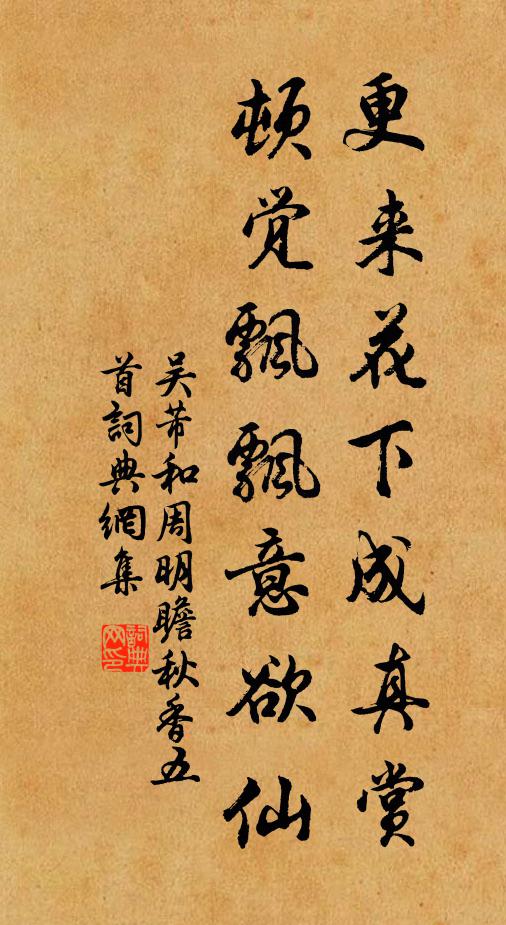 更来花下成真赏
顿觉飘飘意欲仙
吴芾和周明瞻秋香五
首词典網集
詞典網印